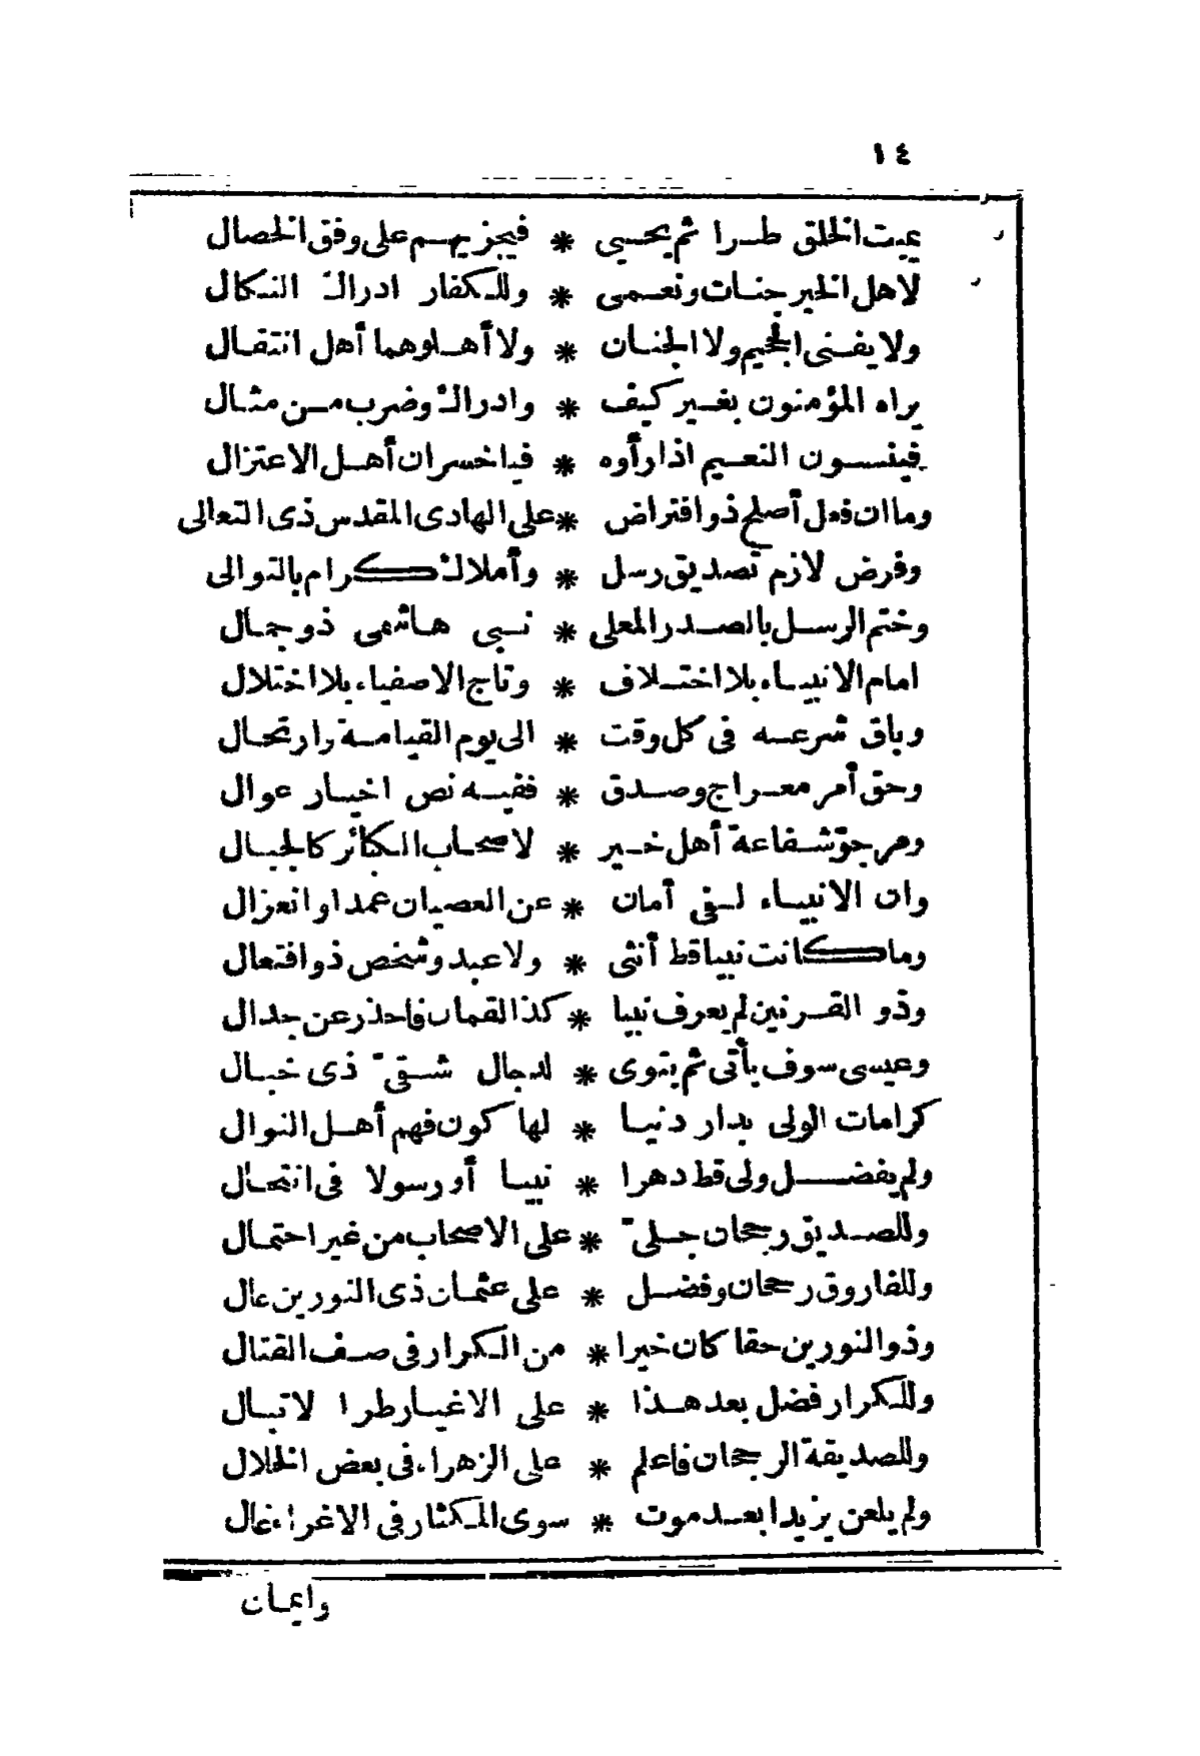 ١٤
يميت الخلق طرا ثم يحيى * فيجزيهم على وفق الخصال
لاهل الخير جنات ونعمى * وللكفار ادراك النكال
ولا يفنى الجحيم ولا الجنان * ولا أهلوهما أهل انتقال
يراه المؤمنون بغير كيف * وادراك وضرب من مثال
فينسون النعيم اذا رأوه * فيا خسران أهل الاعتزال
وما ان فعل أصلح ذو افتراض * على الهادى المقدس ذى التعالى
وفرض لازم تصديق رسل * وأملاك كرام بالتوالى
وختم الرسل بالصدر المعلى * نبى هاشمى ذو جمال
امام الانبياء بلا اختلاف * وتاج الاصفياء بلا اختلال
وباق شرعه فى كل وقت * الى يوم القيامة وارتحال
وحق أمر معراج وصدق * ففيه نص اخبار عوال
ومرجوّ شفاعة أهل خير * لاصحاب الكبائر كالجبال
وان الانبياء لفى أمان * عن العصيان عمدا وانعزال
وما كانت نبيا قط أنثى * ولا عبد وشخص ذو افتعال
وذو القرنين لم يعرف نبيا * كذا لقمان فاحذر عن جدال
وعيسى سوف يأتى ثم يتوى * لدجال شقىّ ذى خبال
كرامات الولى بدار دنيا * لها كون فهم أهل النوال
ولم يفضل ولى قط دهرا * نبيا أو رسولا فى انتحال
وللصديق رجحان جلىّ * على الاصحاب من غير احتمال
وللفاروق رجحان وفضل * على عثمان ذى النورين عال
وذو النورين حقا كان خيرا * من الكرار فى صف القتال
وللكرار فضل بعد هذا * على الاغيار طرا لا تبال
وللصديقة الرجحان فاعلم * على الزهراء فى بعض الخلال
ولم يلعن يزيدا بعد موت * سوى المكثار فى الاغراء غال
وايمان